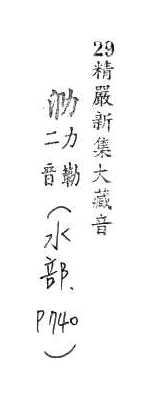 29精嚴新集大藏音
泐力勒二音（水部、P740）